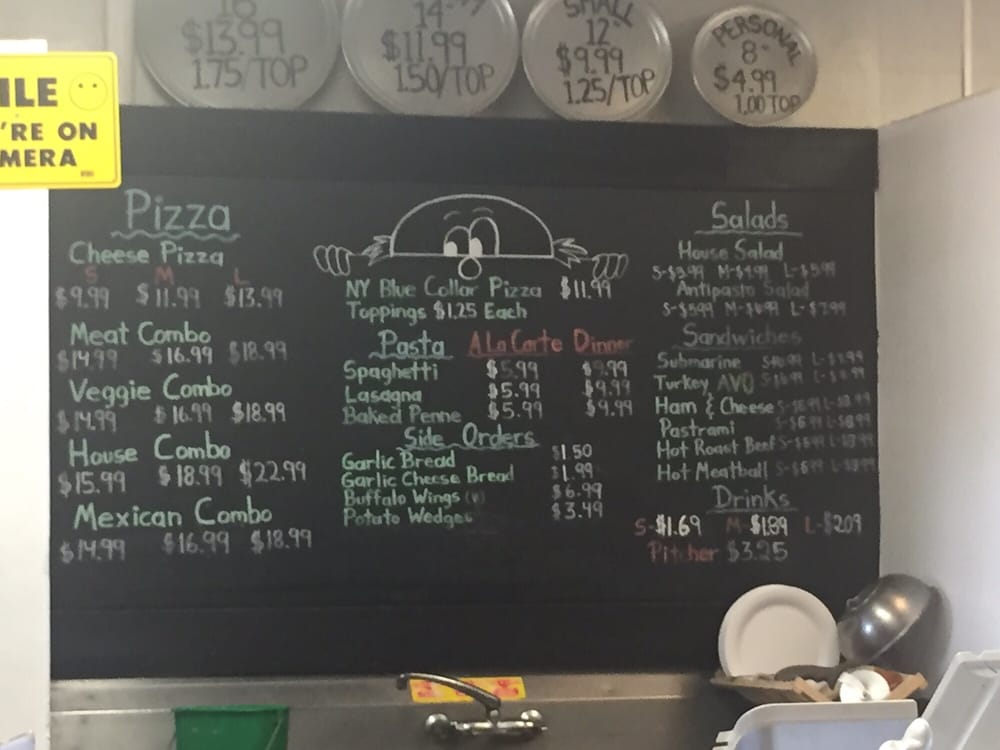 16
$13.99
1.75/TOP
14"
$11.99
1.50/TOP
SMALL
12"
$9.99
1.25/TOP
PERSONAL
8"
$4.99
1.00 TOP
ILE
'RE ON
MERA
Pizza
Cheese Pizza
S M L
$9.99 $11.99 $13.99
Meat Combo
$14.99 $16.99 $18.99
Veggie Combo
$14.99 $16.99 $18.99
House Combo
$15.99 $18.99 $22.99
Mexican Combo
$14.99 $16.99 $18.99
NY Blue Collar Pizza $11.99
Toppings $1.25 Each
Pasta A La Carte Dinner
Spaghetti $5.99 $9.99
Lasagna $5.99 $9.99
Baked Penne $5.99 $9.99
Side Orders
Garlic Bread $1.50
Garlic Cheese Bread $1.99
Buffalo Wings $6.99
Potato Wedges $3.49
Salads
House Salad
S-$3.99 M-$4.99 L-$5.99
Antipasto Salad
S-$5.99 M-$6.99 L-$7.99
Sandwiches
Submarine
Turkey AVO
Ham & Cheese
Pastrami
Hot Roast Beef
Hot Meatball
Drinks
S-$1.69 M-$1.89 L-$2.09
Pitcher $3.25